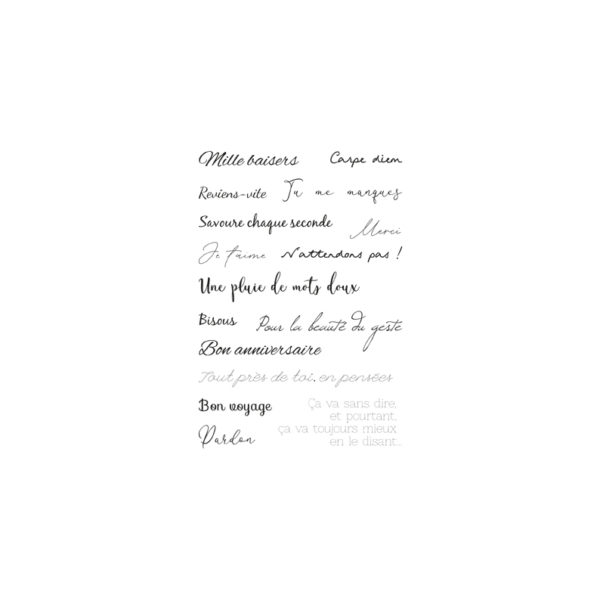 Mille baisers Carpe diem
Reviens-vite Tu me manques
Savoure chaque seconde
Merci
Je t'aime N'attendons pas !
Une pluie de mots doux
Bisous Pour la beauté du geste
Bon anniversaire
Tout près de toi, en pensées
Bon voyage
Ça va sans dire,
et pourtant,
ça va toujours mieux
en le disant...
Pardon